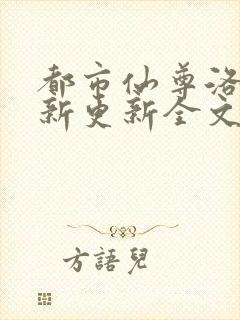 都市仙尊洛
新更新全文
方語兒